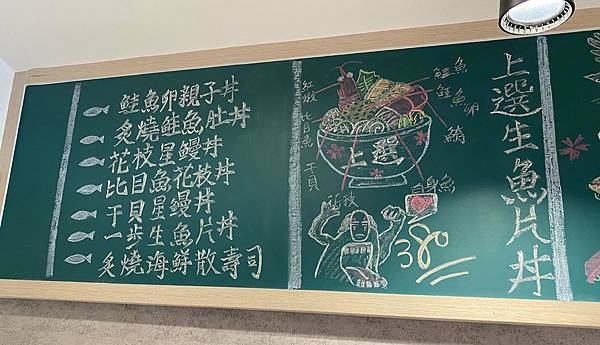 鮭魚卵親子丼
炙燒鮭魚肚丼
花枝星鰻丼
比目魚花枝丼
干貝星鰻丼
一步生魚片丼
炙燒海鮮散壽司
紅蝦
比目魚
干貝
花枝
鮭魚
鮭魚卵
白身魚
上選
380
上選生魚片丼